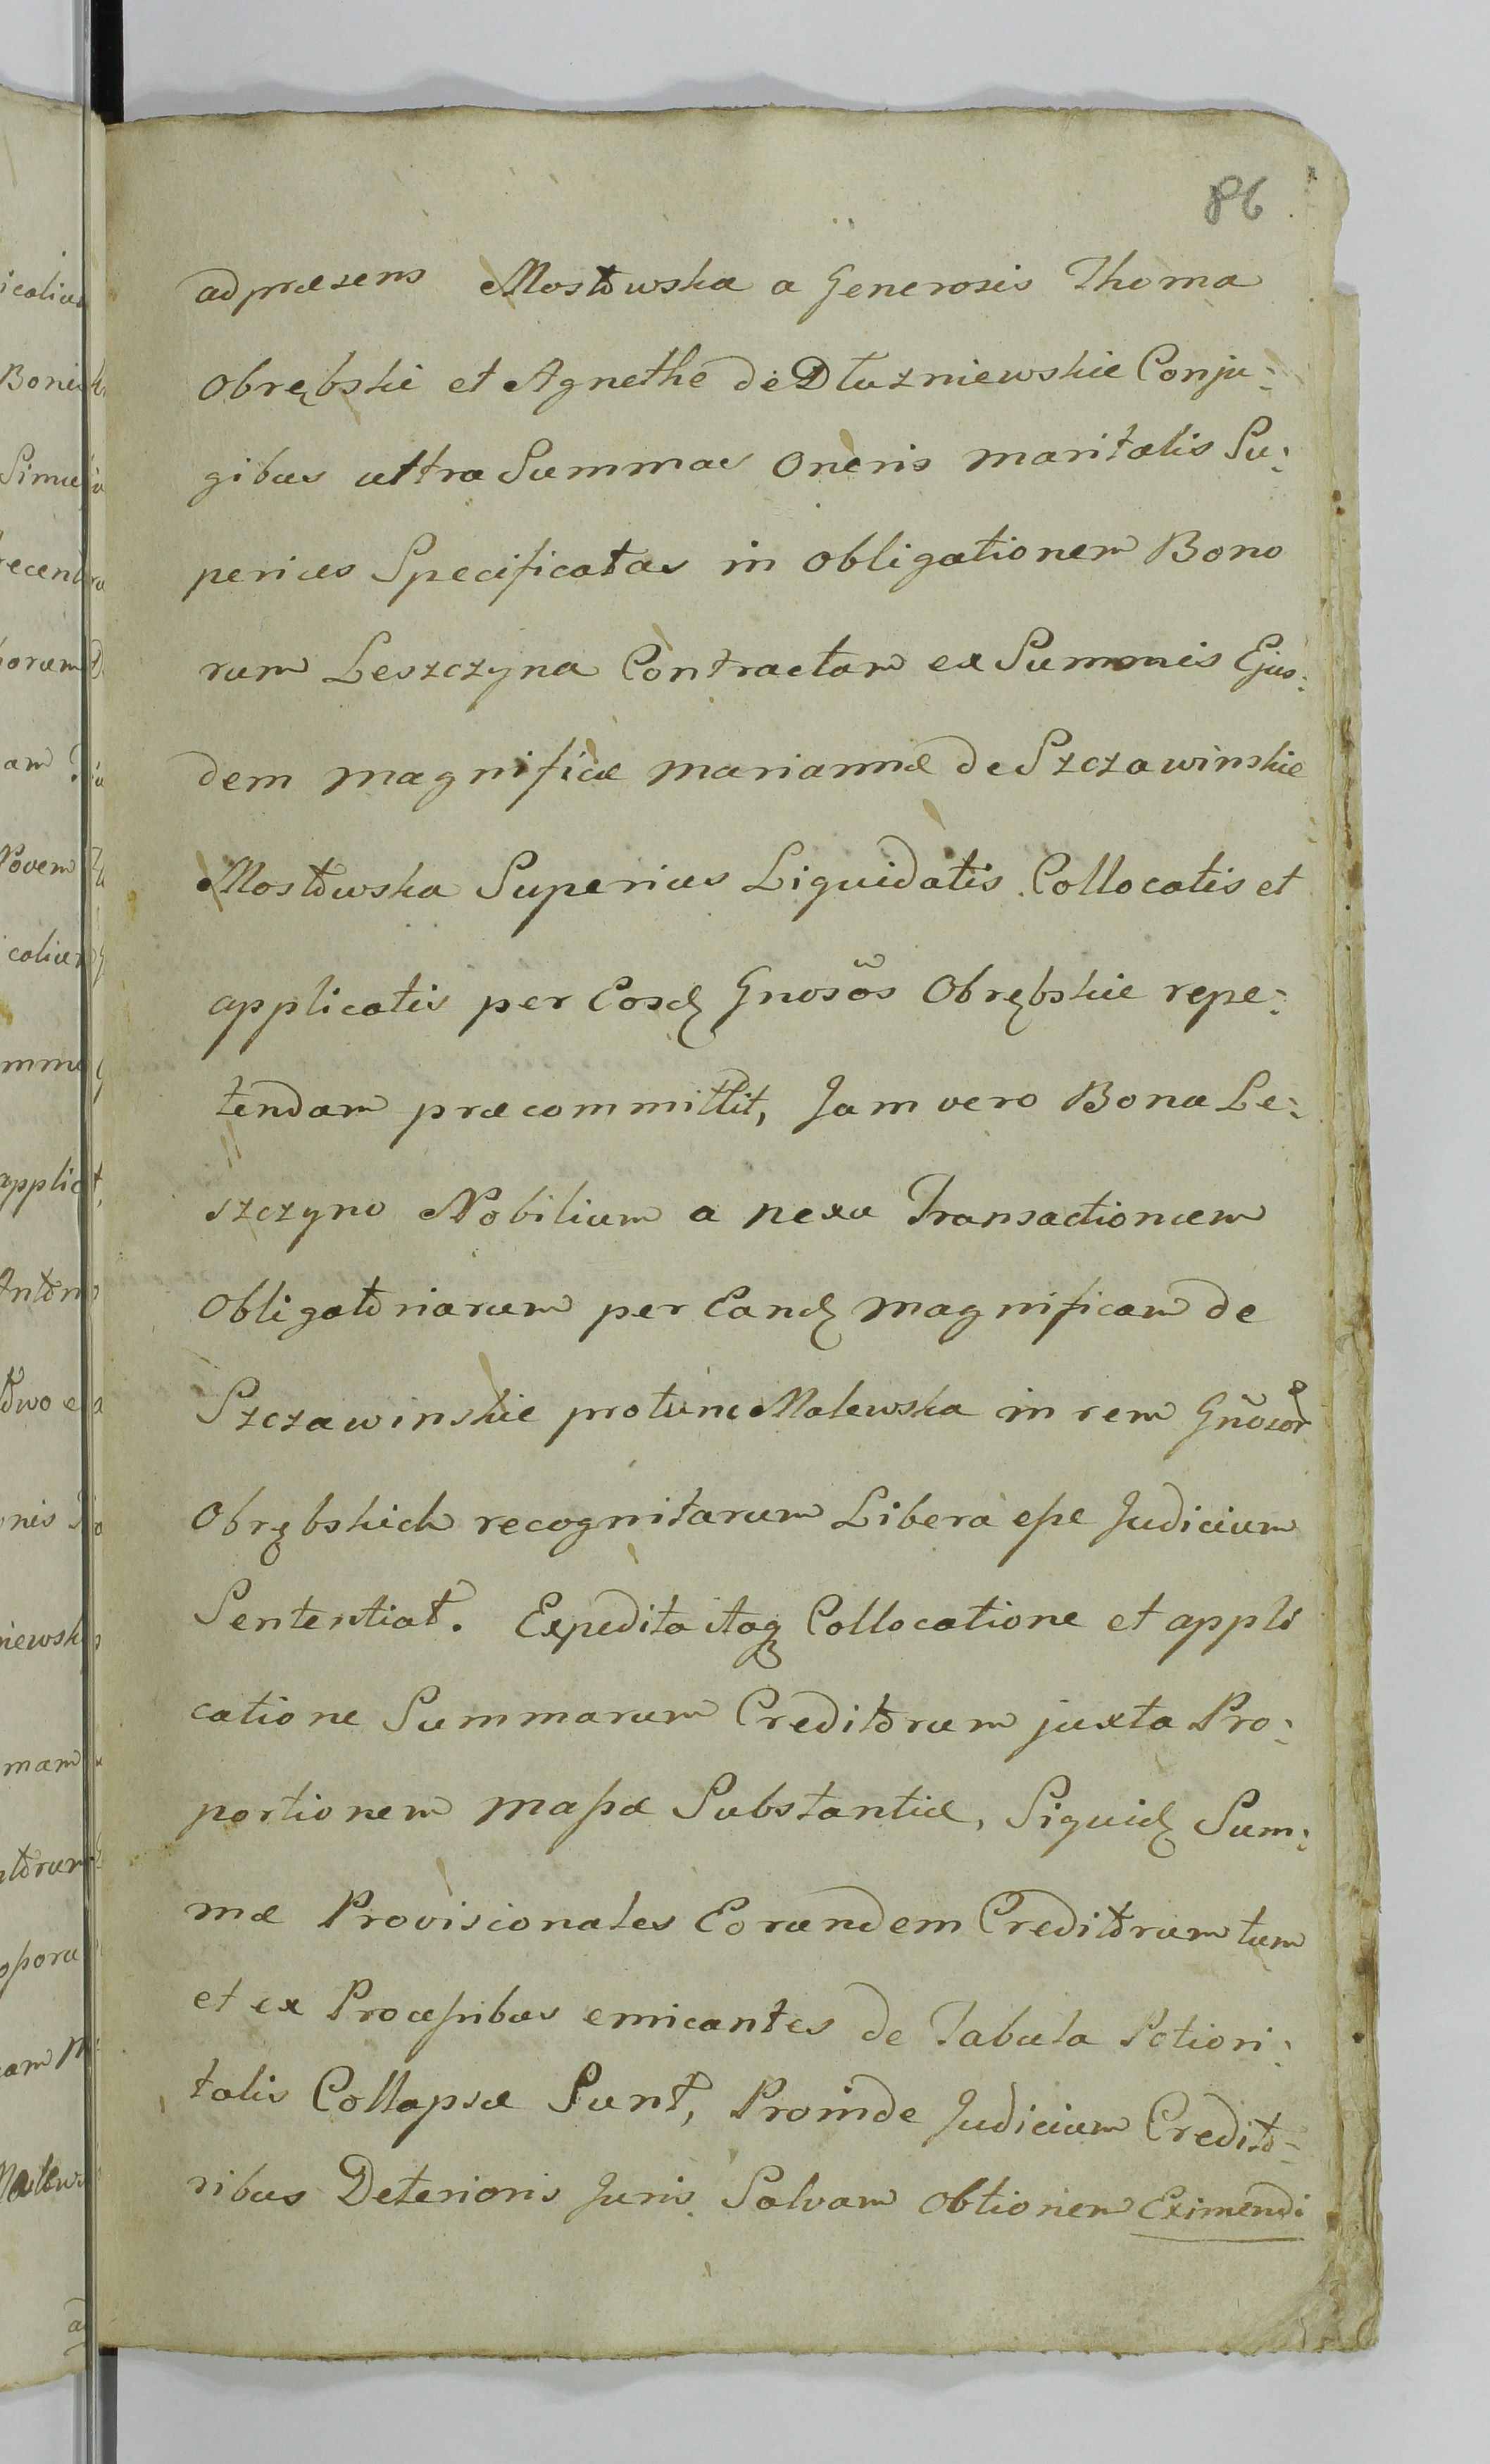 86
ad præsens Mostowska a Generosis Thoma
Obrębski et Agnethe de Dłuzniewskie Conju:
gibus ultra Summas oneris maritalis Su:
perius Specificatas in obligationem Bono
rum Leszczyna Contractam ex Summis Ejus:
dem magnificæ mariannæ de Szczawinskie
Mostowska Superius Liquidatis Collocatis et
applicatis per Eosd Gnosōs Obrębskie repe:
tendam præcommittit, Jam vero Bona Le:
szczyno Nobilium a nexu Transactionum
Obligatoriarum per Eand magnificam de
Szczawinskie protunc Malewska in rem Gñosor
Obrębskich recognitarum Libera eſse Judicium
Sententiat. Expedita itaq Collocatione et appli
catione Summarum Creditorum juxta Pro:
portionem maſsæ Substantiæ, Siquid Sum:
mæ Provisionales Eorundem Creditorum tum
et ex Proceſsibus emicantes de Tabula Potiori:
tatis Collapsæ Sunt, Proinde Judicium Credito:
ribus Deterioris Juris Salvam obtionem Eximendi
icalium
Bonis
Simu
recent
am
Novem
applic
Anton
mam